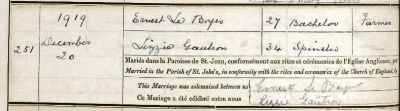 1919 Ernest Le Boyer 27 Bachelor Farmer
251 December 20 Lizzie Gautron 34 Spinster
Mariés dans la Paroisse de St. Jean, conformément aux rites et cérémonies de l'Église Anglicane, par
Married in the Parish of St. John's, in conformity with the rites and ceremonies of the Church of England, by
This Marriage was solemnized between us Ernest Le Boyer
Ce Mariage a été célébré entre nous Lizzie Gautron